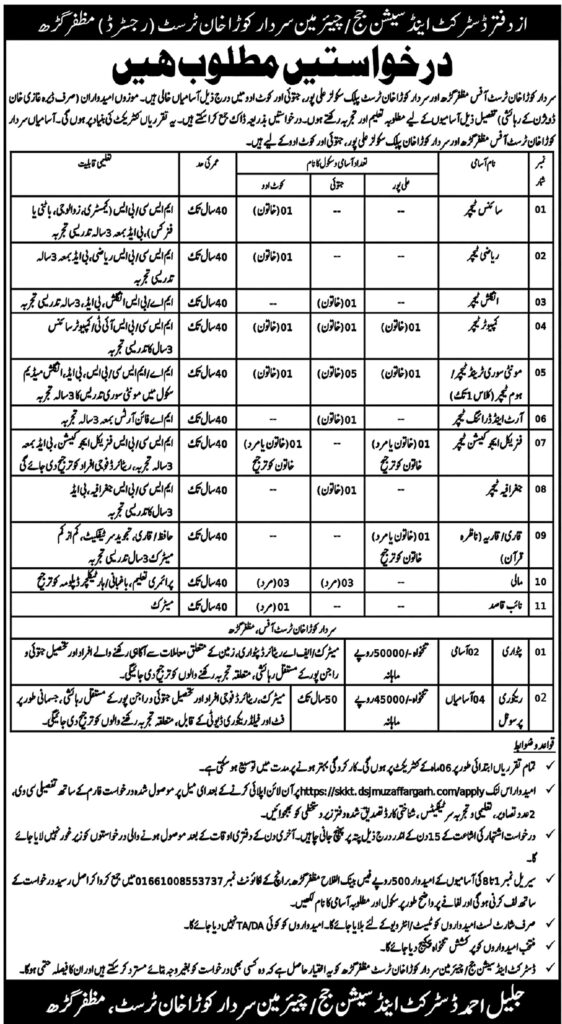 از دفتر ڈسٹرکٹ اینڈ سیشن جج / چیئرمین سردار کوڑا خان ٹرسٹ (رجسٹرڈ) مظفر گڑھ
درخواستیں مطلوب ھیں
سردار کوڑا خان ٹرسٹ آفس مظفر گڑھ اور سردار کوڑا خان ٹرسٹ پبلک سکولز علی پور، جتوئی اور کوٹ ادو میں درج ذیل آسامیاں خالی ہیں۔ موزوں امیدواران (صرف ڈیرہ غازی خان
ڈویژن کے رہائشی) تفصیل ذیل آسامیوں کے لیے مطلوبہ تعلیم اور تجربہ رکھتے ہوں۔ درخواستیں بذریعہ ڈاک جمع کرا سکتے ہیں۔ یہ تقرریاں کنٹریکٹ کی بنیاد پر ہوں گی۔ آسامیاں سردار
کوڑا خان ٹرسٹ آفس مظفر گڑھ اور سردار کوڑا خان پبلک سکولز علی پور، جتوئی اور کوٹ ادو کے لیے ہیں۔
نمبر شمار نام آسامی تعداد آسامی و سکول کا نام عمر کی حد تعلیمی قابلیت
علی پور جتوئی کوٹ ادو
01 سائنس ٹیچر -- -- 01(خاتون) 40سال تک ایم ایس سی/ بی ایس (کیمسٹری، زوالوجی، باٹنی یا
فزکس)، بی ایڈ بمعہ 3 سالہ تدریسی تجربہ
02 ریاضی ٹیچر -- -- 01(خاتون) 40سال تک ایم ایس سی/ بی ایس ریاضی، بی ایڈ بمعہ 3 سالہ
تدریسی تجربہ
03 انگلش ٹیچر -- 01(خاتون) -- 40سال تک ایم اے/ بی ایس انگلش، بی ایڈ، 3 سالہ تدریسی تجربہ
04 کمپیوٹر ٹیچر 01(خاتون) 01(خاتون) 01(خاتون) 40سال تک ایم ایس سی/ بی ایس آئی ٹی/ کمپیوٹر سائنس
3 سال کا تدریسی تجربہ
05 مونٹی سوری ٹرینڈ ٹیچر/ 01(خاتون) 05(خاتون) 01(خاتون) 40سال تک ایم اے/ ایم ایس سی/ بی ایس، بی ایڈ، انگلش میڈیم
ہوم ٹیچر (کلاس 1 تک) سکول میں مونٹی سوری تدریس کا 3 سالہ تجربہ
06 آرٹ اینڈ ڈرائنگ ٹیچر -- 01(خاتون) -- 40سال تک ایم اے فائن آرٹس بمعہ 3 سالہ تجربہ
07 فزیکل ایجوکیشن ٹیچر 01(خاتون یا مرد) -- 01(خاتون یا مرد) 40سال تک ایم ایس سی/ بی ایس فزیکل ایجوکیشن، بی ایڈ بمعہ
خاتون کو ترجیح خاتون کو ترجیح 3 سالہ تجربہ، ریٹائرڈ فوجی افراد کو ترجیح دی جائے گی
08 جغرافیہ ٹیچر -- 01(خاتون) -- 40سال تک ایم ایس سی/ بی ایس جغرافیہ، بی ایڈ
3 سال کا تدریسی تجربہ
09 قاری/ قاریہ (ناظرہ 01(خاتون یا مرد) -- -- 40سال تک حافظ/ قاری، تجوید سرٹیفکیٹ، کم از کم
قرآن) خاتون کو ترجیح میٹرک 3 سال تدریسی تجربہ
10 مالی -- 03(مرد) 03(مرد) 40سال تک پرائمری تعلیم، باغبانی/ ہارٹیکلچر ڈپلومہ کو ترجیح
11 نائب قاصد -- -- 01(مرد) 40سال تک میٹرک
سردار کوڑا خان ٹرسٹ آفس، مظفر گڑھ
01 پٹواری 02آسامی تنخواہ -/50000روپے میٹرک/ ایف اے ریٹائرڈ پٹواری، زمین کے متعلق معاملات سے آگاہی رکھنے والے افراد اور تحصیل جتوئی و
ماہانہ راجن پور کے مستقل رہائشی، متعلقہ تجربہ رکھنے والوں کو ترجیح دی جائیگی۔
02 ریکوری 04آسامیاں تنخواہ -/45000روپے 50سال تک میٹرک، ریٹائرڈ فوجی افراد اور تحصیل جتوئی و راجن پور کے مستقل رہائشی، جسمانی طور پر
پرسونل ماہانہ فٹ اور فیلڈ ریکوری ڈیوٹی کے قابل، متعلقہ تجربہ رکھنے والوں کو ترجیح دی جائیگی۔
قواعد و ضوابط
✓ تمام تقرریاں ابتدائی طور پر 06ماہ کے کنٹریکٹ پر ہوں گی۔ کارکردگی بہتر ہونے پر مدت میں توسیع ہو سکتی ہے۔
✓ امیدوار اس لنک https://skkt.dsjmuzaffargarh.com/apply پر آن لائن اپلائی کرنے کے بعد ای میل پر موصول شدہ درخواست فارم کے ساتھ تفصیلی سی وی،
2 عدد تصاویر، تعلیمی و تجربہ سرٹیفکیٹس، شناختی کارڈ تصدیق شدہ دفتر زیر دستخطی کو بھجوائیں۔
✓ درخواست اشتہار کی اشاعت کے 15 دن کے اندر درج ذیل پتہ پر پہنچ جانی چاہیں۔ آخری دن کے دفتری اوقات کے بعد موصول ہونے والی درخواستوں کو زیر غور نہیں لایا جائے
گا۔
✓ سیریل نمبر 1 تا 8 کی آسامیوں کے امیدوار 500 روپے فیس بینک الفلاح مظفر گڑھ برانچ کے اکاؤنٹ نمبر 01661008553737 میں جمع کروا کر اصل رسید درخواست کے
ساتھ لف کرنی ہوگی اور لفافے پر واضح طور پر سکول اور مطلوبہ آسامی کا نام لکھیں۔
✓ صرف شارٹ لسٹ امیدواروں کو ٹیسٹ/ انٹرویو کے لئے بلایا جائے گا۔ امیدواروں کو کوئی TA/DA نہیں دیا جائے گا۔
✓ منتخب امیدواروں کو پرکشش تنخواہ پیکیج دیا جائے گا۔
✓ ڈسٹرکٹ اینڈ سیشن جج/ چیئرمین سردار کوڑا خان ٹرسٹ مظفر گڑھ کو یہ اختیار حاصل ہے کہ وہ کسی بھی درخواست کو بغیر وجہ بتائے مسترد کر سکتے ہیں اور ان کا فیصلہ حتمی ہوگا۔
جلیل احمد ڈسٹرکٹ اینڈ سیشن جج/ چیئرمین سردار کوڑا خان ٹرسٹ، مظفر گڑھ